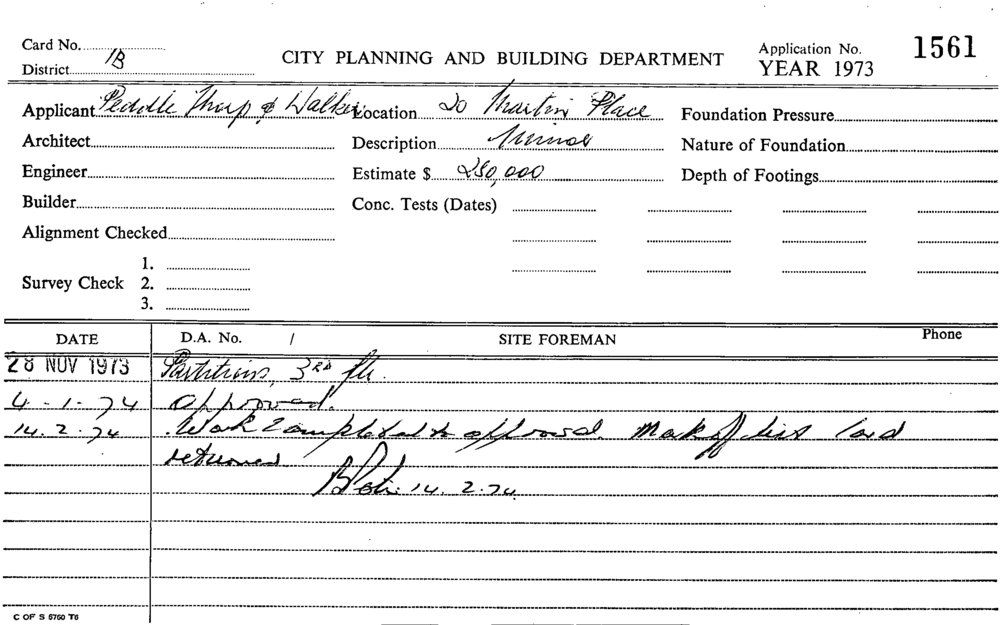 Card No.
District 1B
CITY PLANNING AND BUILDING DEPARTMENT
Application No. 1561
YEAR 1973
Applicant Peddle Thorp & Walker Location 20 Martin Place Foundation Pressure
Architect Description Minor Nature of Foundation
Engineer Estimate $ 250,000 Depth of Footings
Builder Conc. Tests (Dates)
Alignment Checked
Survey Check 1.
2.
3.
DATE D.A. No. / SITE FOREMAN Phone
28 NOV 1973 Partitions, 3RD flr.
4-1-74 Approved.
14.2.74 Work completed to approval. Mark off list Card
returned
14.2.74
C OF S 5760 T6